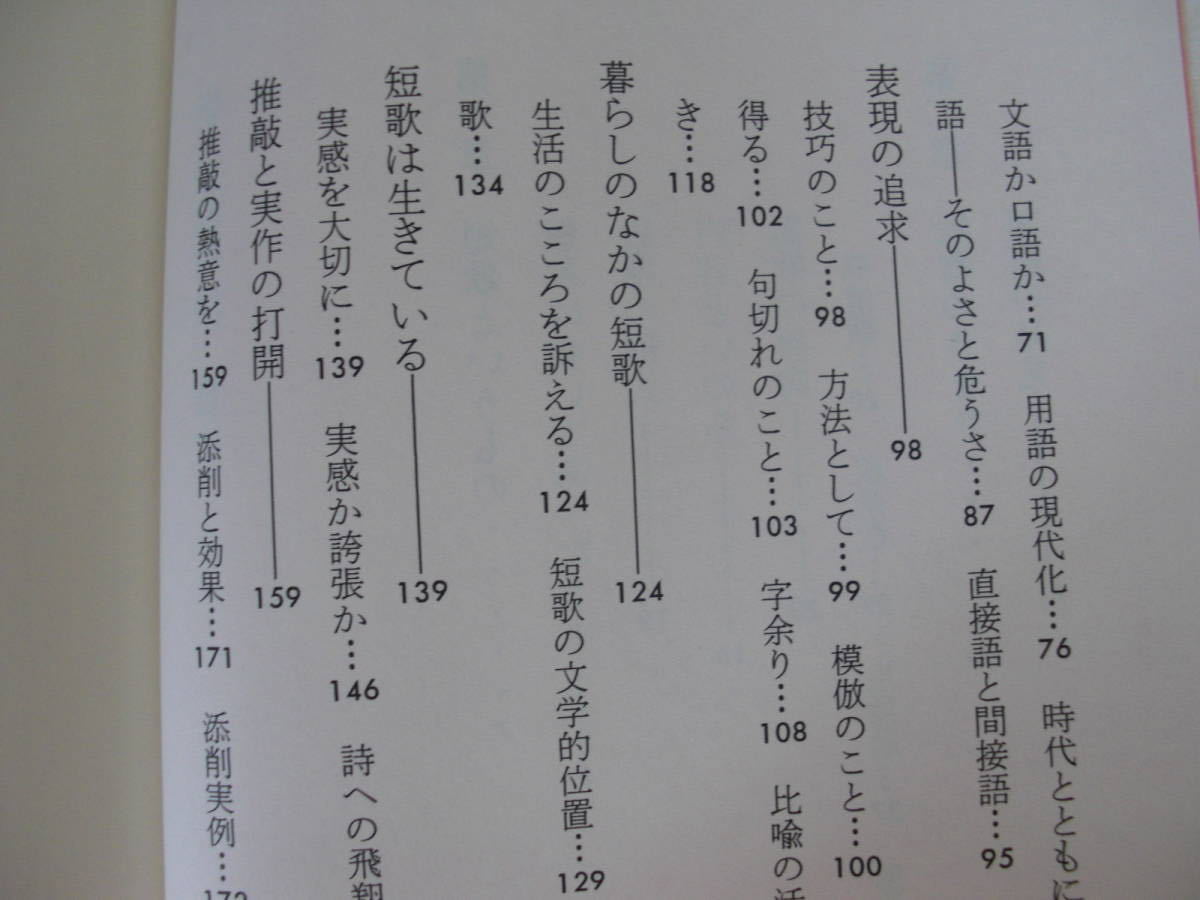 文語か口語か…71 用語の現代化…76 時代ととも
語――そのよさと危うさ…87 直接語と間接語…95
表現の追求――98
技巧のこと…98 方法として…99 模倣のこと…100
得る…102 句切れのこと…103 字余り…108 比喩の
き…118
暮らしのなかの短歌――124
生活のこころを訴える…124 短歌の文学的位置…129
歌…134
短歌は生きている――139
実感を大切に…139 実感か誇張か…146 詩への飛翔
推敲と実作の打開――159
推敲の熱意を…159 添削と効果…171 添削実例…